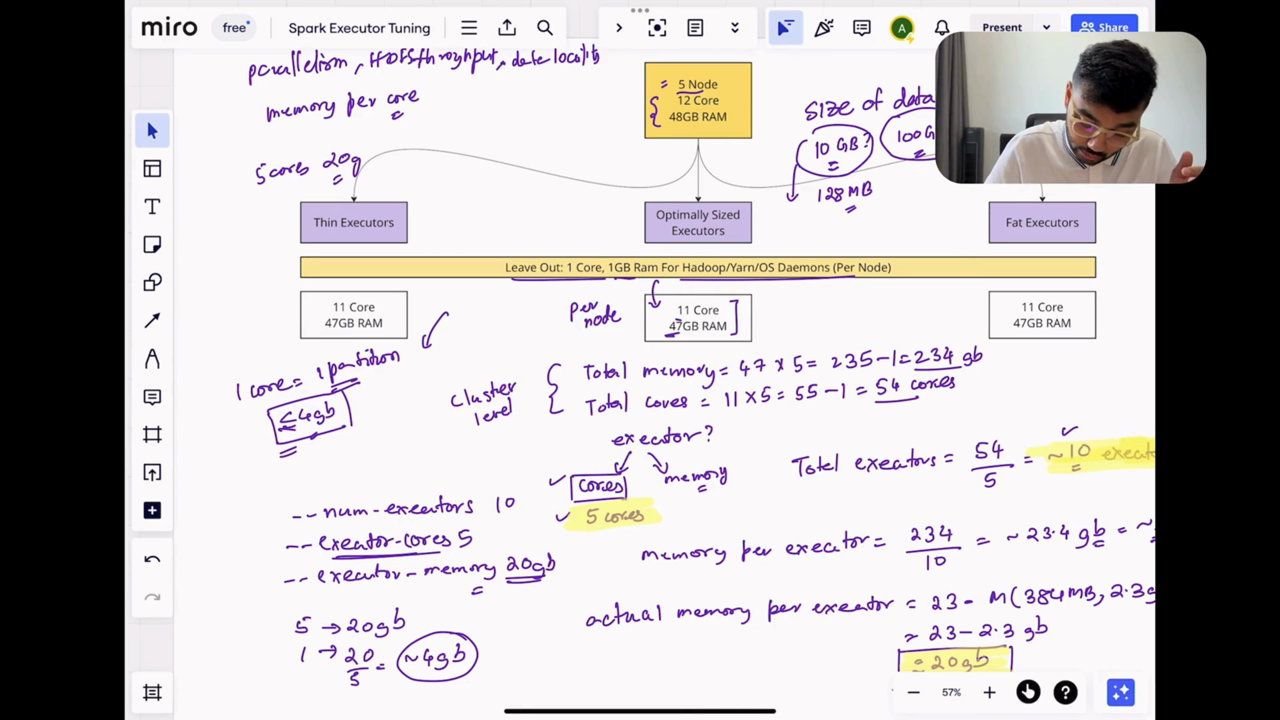 miro free Spark Executor Tuning Present Share
A
parallelism, HDFS throughput, data locality
memory per core
= 5 Node
12 Core
48GB RAM
size of data
10 GB?
128 MB
5 cores 20g
Thin Executors
Optimally Sized
Executors
Fat Executors
Leave Out: 1 Core, 1GB Ram For Hadoop/Yarn/OS Daemons (Per Node)
11 Core
47GB RAM
per
node
11 Core
47GB RAM
11 Core
47GB RAM
1 core = 1 partition
≤4gb
cluster
level
Total memory = 47 x 5 = 235 - 1 = 234 gb
Total cores = 11 x 5 = 55 - 1 = 54 cores
executor?
cores
memory
5 cores
Total executors = 54/5 = ~10
-- num-executors 10
-- executor-cores 5
-- executor-memory 20gb
memory per executor = 234/10 = ~23.4 gb = ~
actual memory per executor = 23 - M(384MB, 2.3g
≈ 23 - 2.3 gb
= 20gb
5 → 20gb
1 → 20/5 = ~4gb
57%